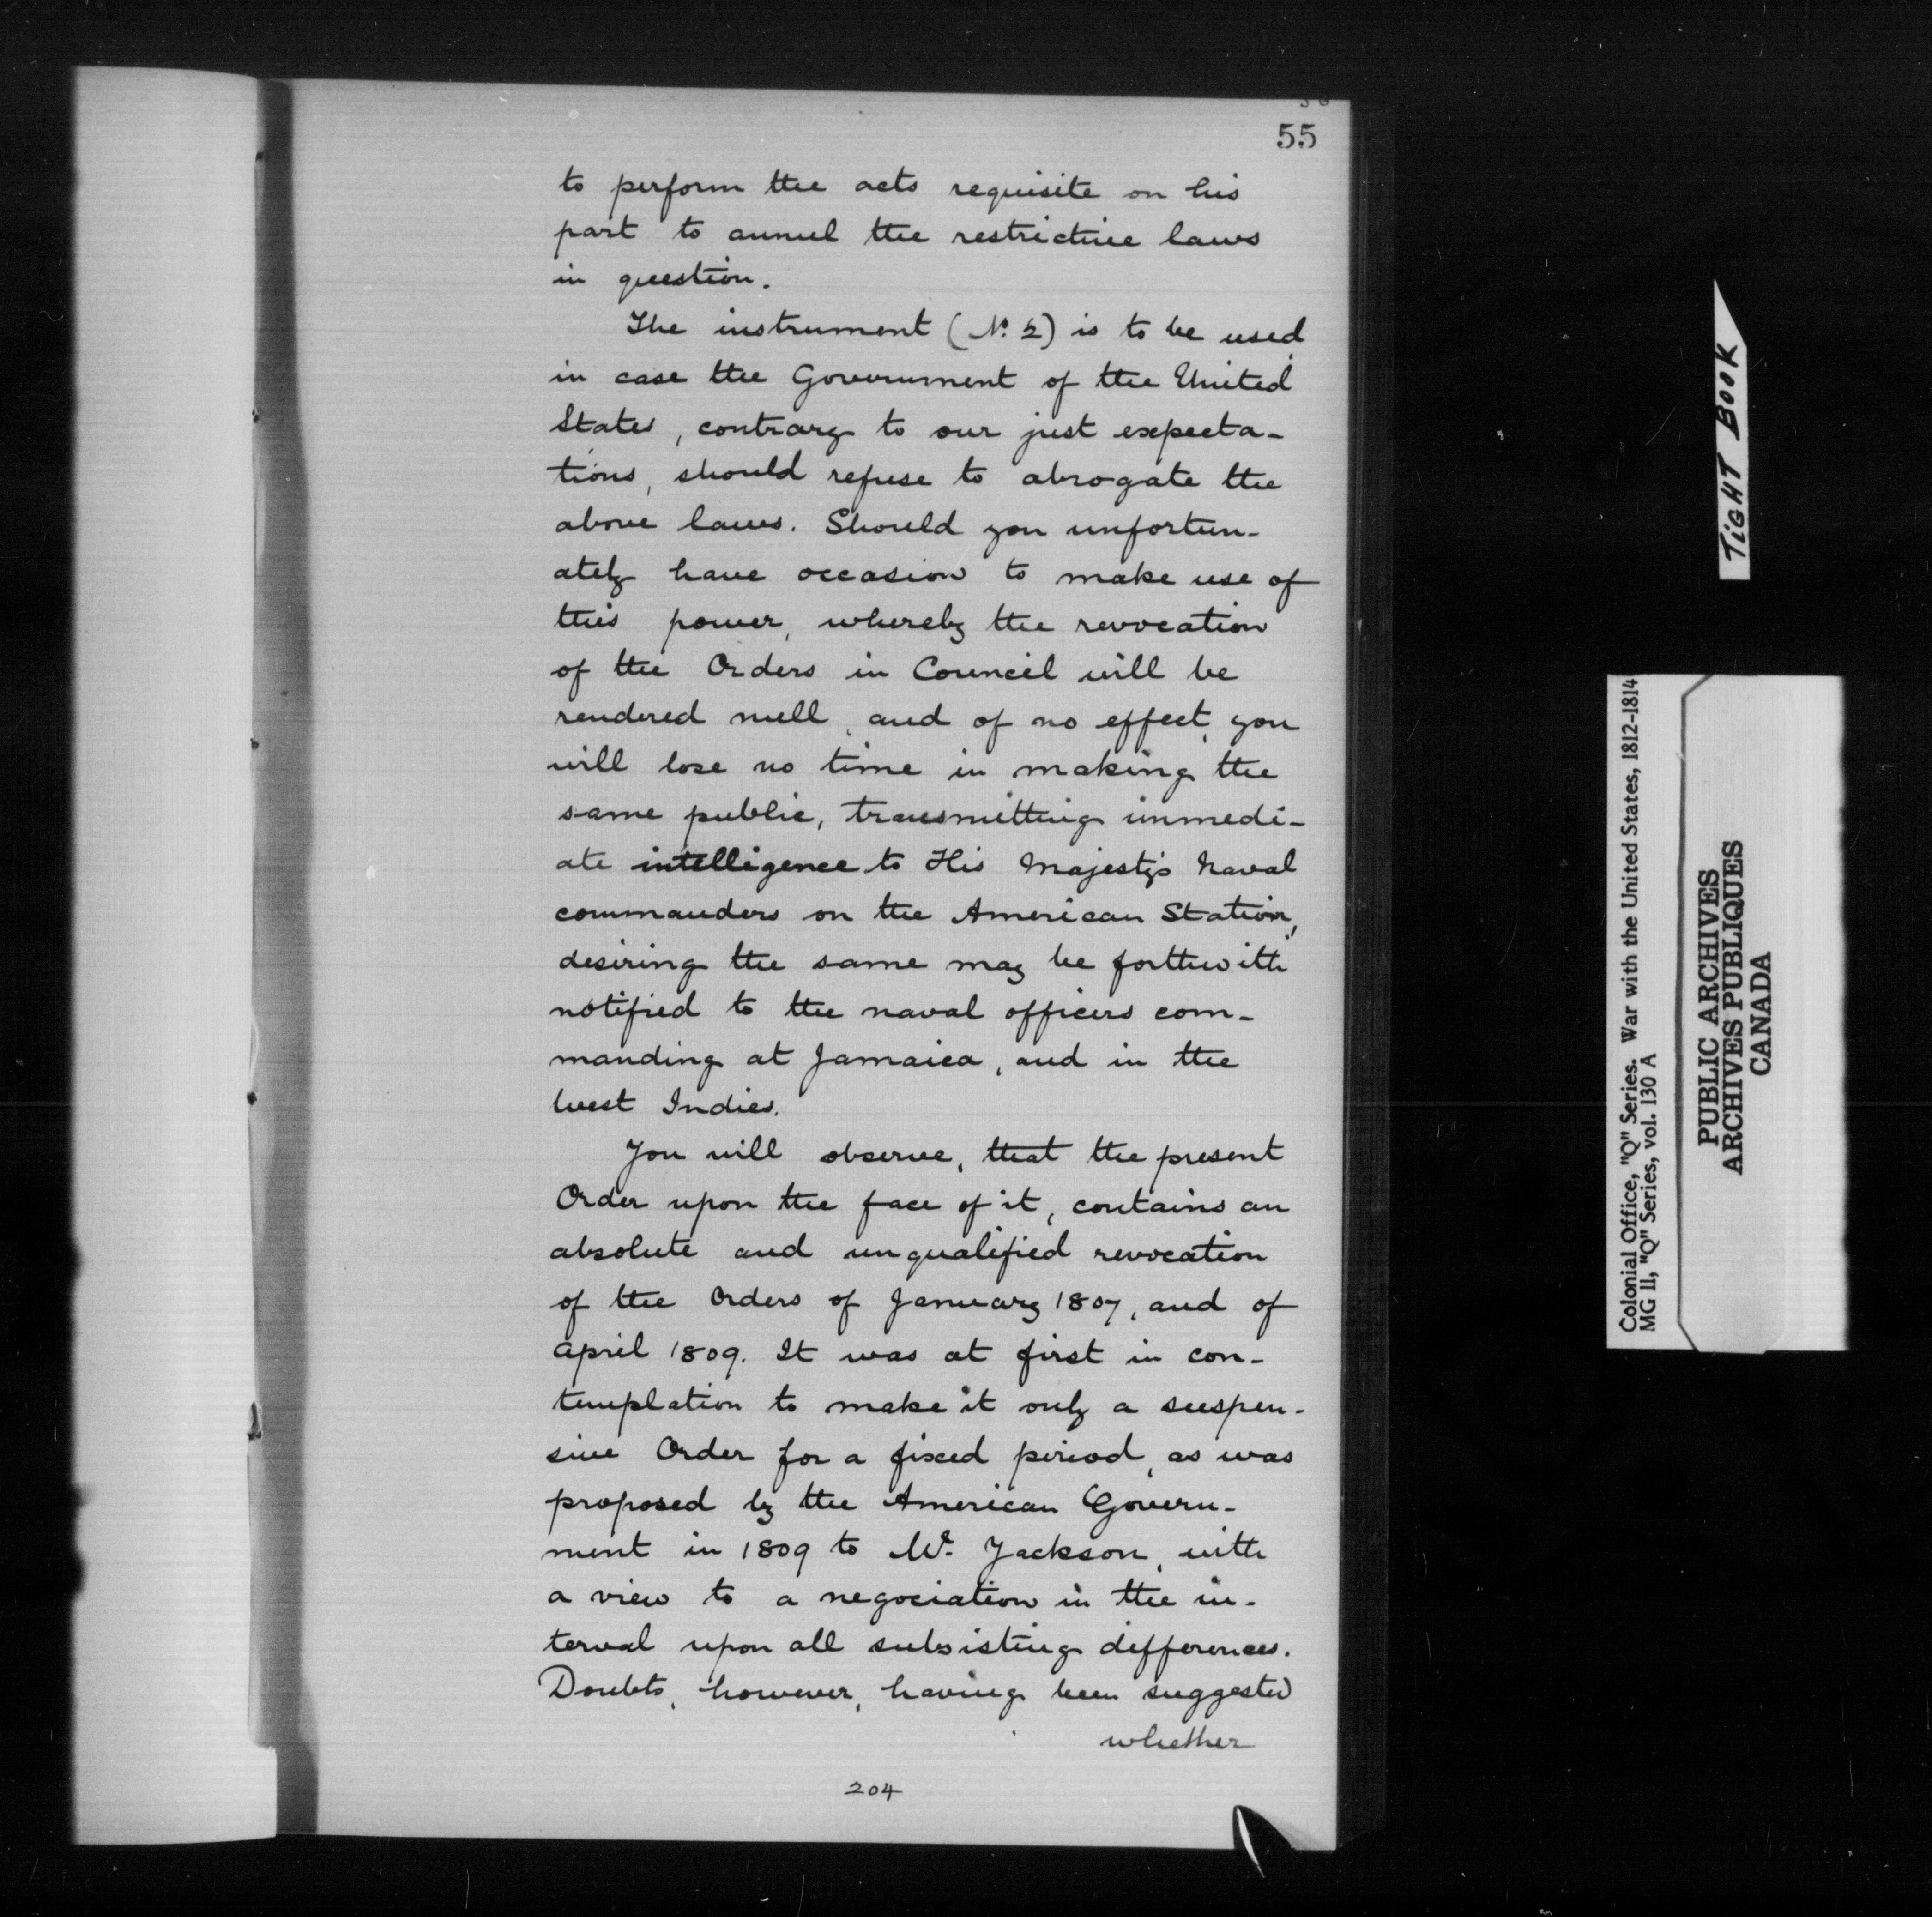 55
to perform the acts requisite on his
part to annul the restrictive laws
in question.
The instrument (No. 2) is to be used
in case the Government of the United
States, contrary to our just expecta-
tions, should refuse to abrogate the
above laws. Should you unfortun-
ately have occasion to make use of
this power, whereby the revocation
of the Orders in Council will be
rendered null, and of no effect, you
will lose no time in making the
same public, transmitting immedi-
ate intelligence to His Majesty's Naval
commanders on the American Station,
desiring the same may be forthwith
notified to the naval officers com-
manding at Jamaica, and in the
West Indies.
You will observe, that the present
Order upon the face of it, contains an
absolute and unqualified revocation
of the Orders of January 1807, and of
April 1809. It was at first in con-
templation to make it only a suspen-
sive Order for a fixed period, as was
proposed by the American Govern-
ment in 1809 to Mr. Jackson, with
a view to a negociation in the in-
terval upon all subsisting differences.
Doubts, however, having been suggested
whether
204
TIGHT BOOK
Colonial Office, "Q" Series. War with the United States, 1812-1814
MG 11, "Q" Series, vol. 130 A
PUBLIC ARCHIVES
ARCHIVES PUBLIQUES
CANADA